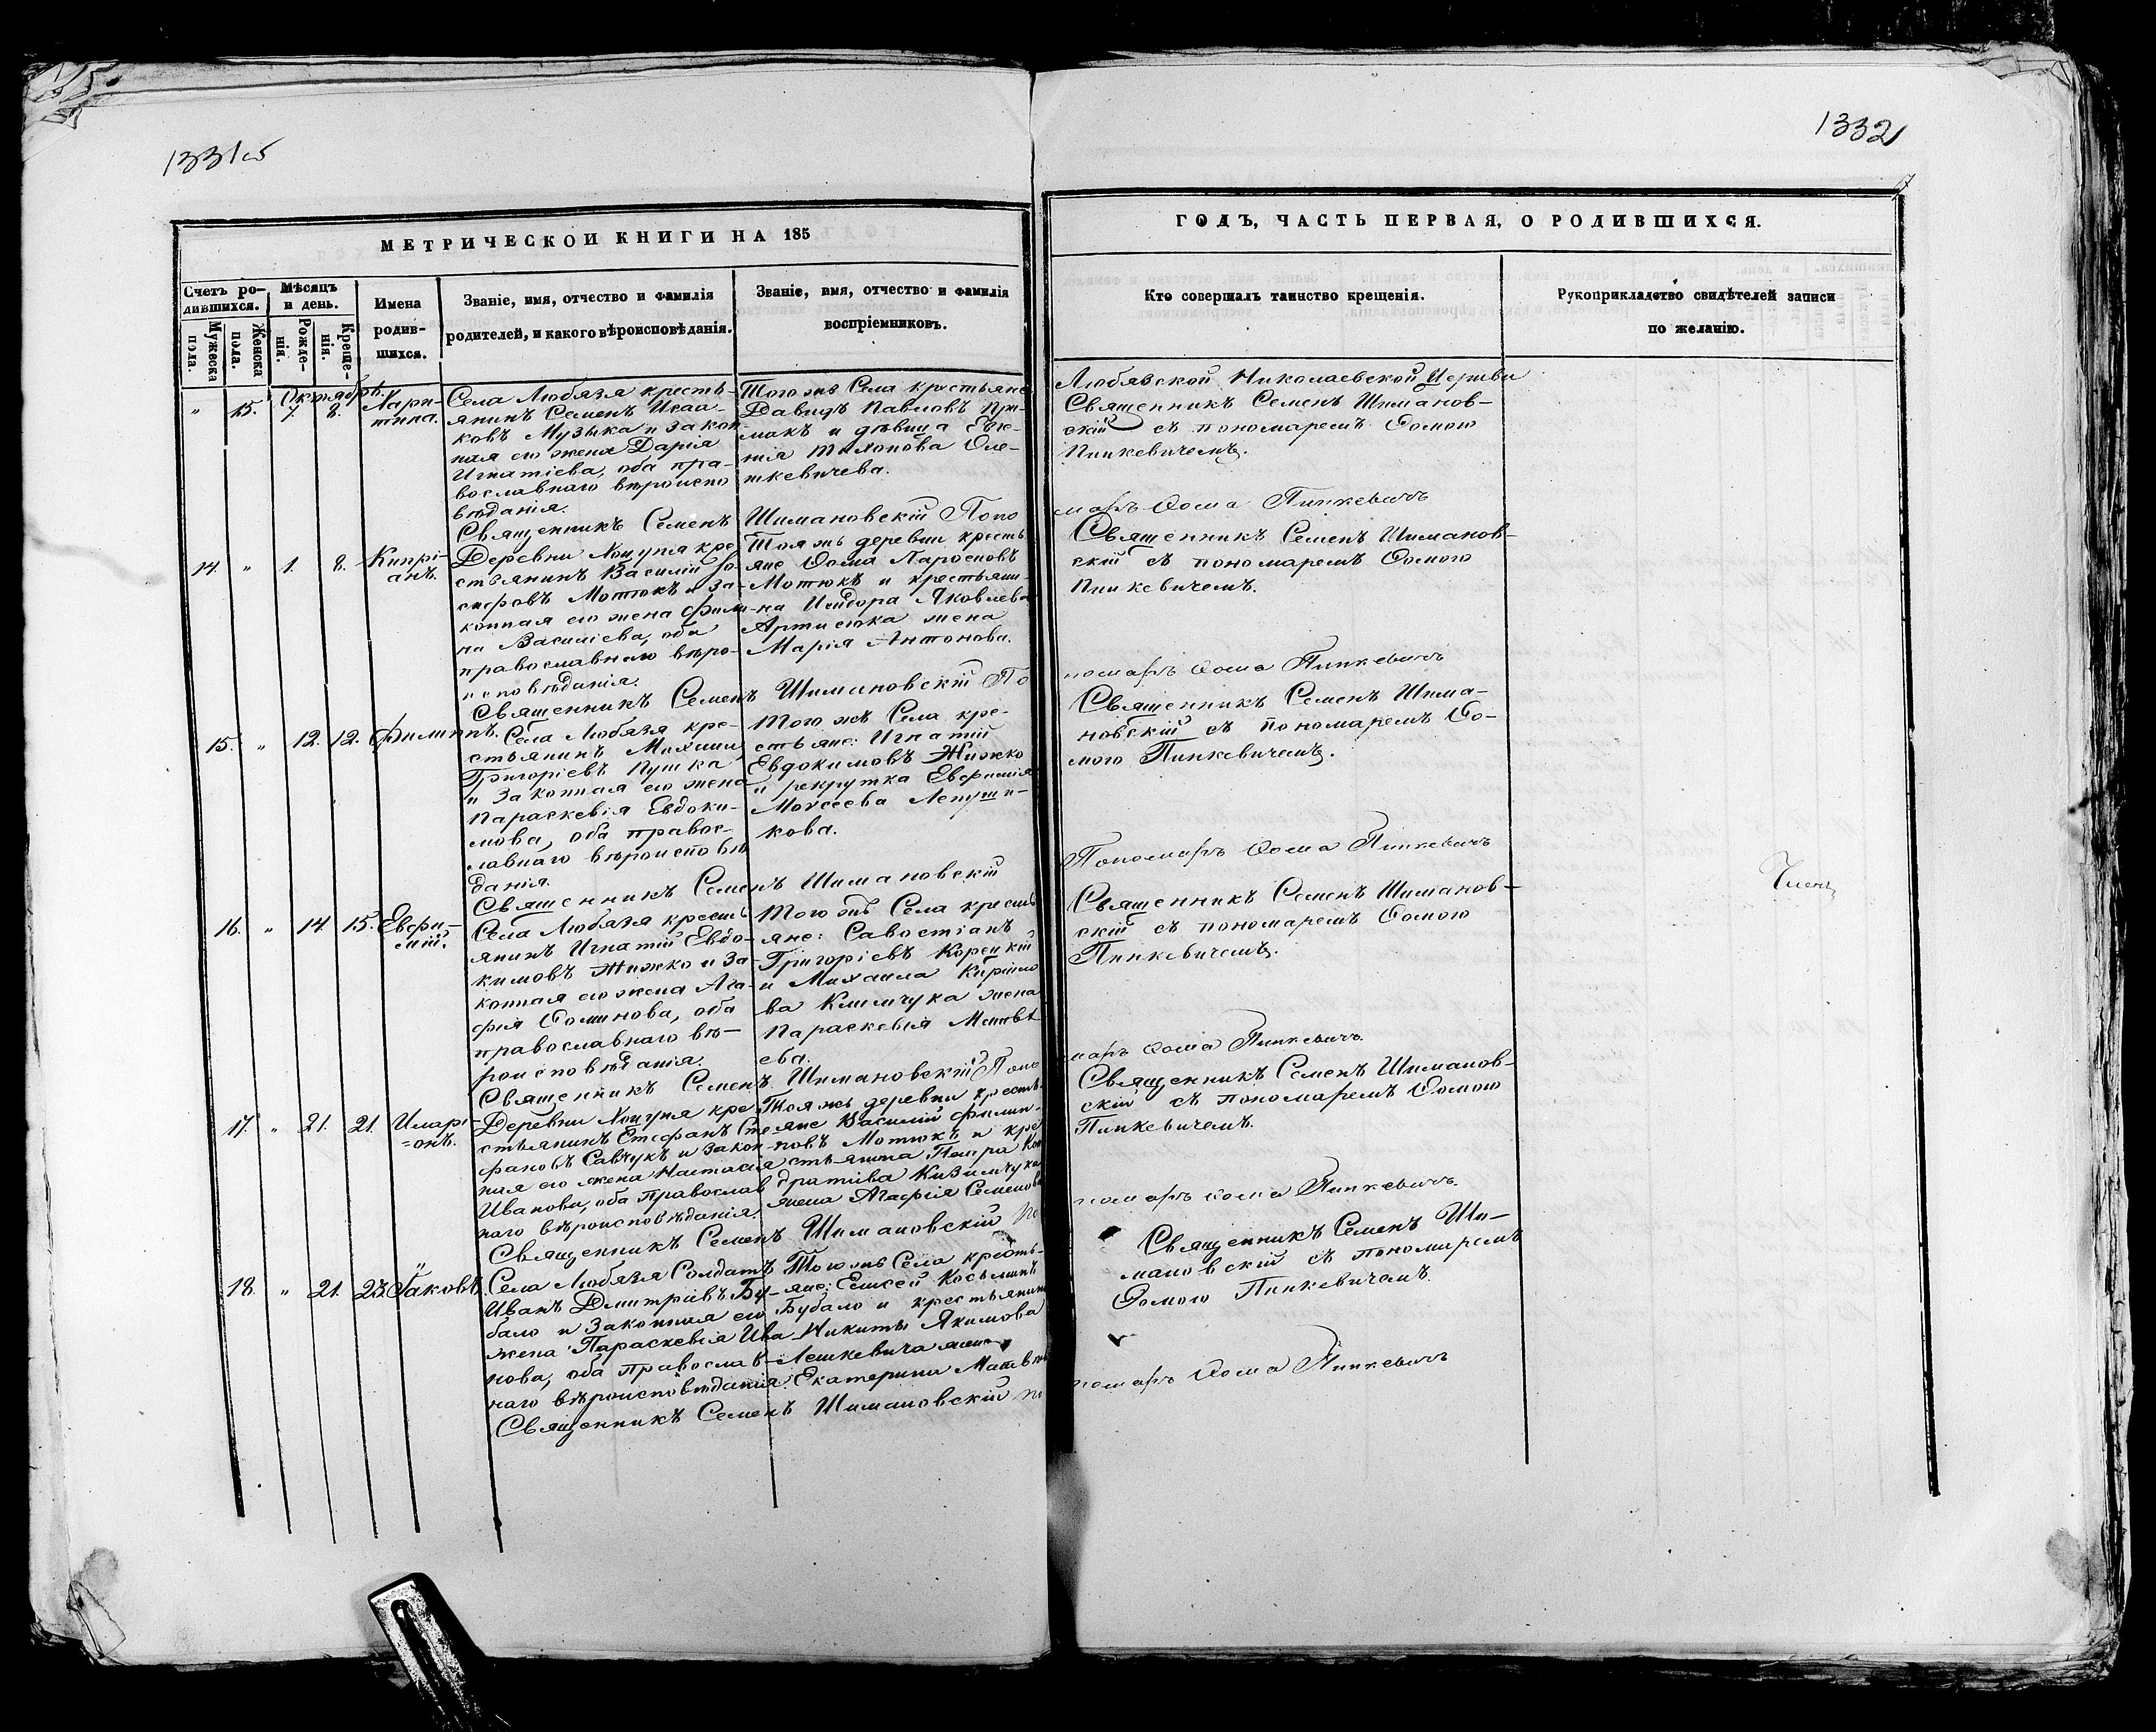 1331об
1332
МЕТРИЧЕСКОЙ КНИГИ НА 185
Счетъ ро-
дившихся.
Мѣсяцъ
и день.
Мужеска
пола.
Женска
пола.
Рожде-
нія.
Креще-
нія.
Имена
родив-
шихся.
Званіе, имя, отчество и фамилія
родителей, и какого вѣроисповѣданія.
Званіе, имя, отчество и фамилія
воспріемниковъ.
Октябрь.
" 15. 7 8. Хари-
тина.
Села Любязя кресть-
янинъ Семенъ Исаа-
ковъ Музыка и закон
ная его жена Дарія
Игнатіева, оба пра-
вославнаго вѣроиспо
вѣданія.
Того жъ Села крестьяне
Давидъ Павловъ При-
макъ и дѣвица Евге-
нія Тихонова Оле-
шкевичева.
Священникъ Семенъ Шимановскій Поно
14. " 1. 8. Кипрі-
анъ.
Деревни Хоцуня кре-
стьянинъ Василій Іо-
сифовъ Мотюкъ и за-
конная его жена Фили-
на Василіева, оба
православнаго вѣро-
исповѣданія.
Тоя жъ деревни кресть
яне Ѳома
Мотюкъ и крестьяни-
на Исидора Яковлева
Артисюка жена
Марія Антонова.
Священникъ Семенъ Шимановскій По
15. " 12. 12. Филиппъ.
Села Любязя кре-
стьянинъ Михаил
Григоріевъ Пушка
и законная его жена
Параскевія Евдоки-
мова, оба правос-
лавнаго вѣроисповѣ
данія.
Того жъ Села кре-
стьяне: Игнатій
Евдокимовъ Жижко
и рекрутка Евфимія
Мойсеева
кова.
Священникъ Семенъ Шимановскій
16. " 14. 15. Евфи-
мій.
Села Любязя кресть
янинъ Игнатій Евдо-
кимовъ Жижко и за-
конная его жена Ага-
фія Ѳоминова, оба
православнаго вѣ-
роисповѣданія
Того жъ Села кресть
яне: Савостіанъ
Григоріевъ Корецкій
и Михаила Кирило
ва Климчука жена
Параскевія Матвѣ
ева.
Священникъ Семенъ Шимановскій Поно
17. " 21. 21. Иларі-
=онъ.
Деревни Хоцуня кре
стьянинъ Стефанъ Сте
фановъ Савчукъ и закон-
ная его жена Настасія
Иванова, оба православ
наго вѣроисповѣданія.
Тоя жъ деревни кресть-
яне Василій Филип-
повъ Мотюкъ и кре
стьянина Петра Кон
дратіва Кизимчука
жена Агафія Семенова
Священникъ Семенъ Шимановскій По
18. " 21. 23. Іаковъ.
Села Любязя Солдатъ
Иванъ Дмитріевъ Бу-
бало и законная его
жена Параскевія Ива
нова, оба православ-
наго вѣроисповѣданія.
Того жъ Села кресть-
яне: Елисей Косьминъ
Бубало и крестьянина
Никиты Якимова
Лешкевича жена
Екатерина Матвѣе
Священникъ Семенъ Шимановскій По
ГОДЪ, ЧАСТЬ ПЕРВАЯ, О РОДИВШИХСЯ.
Кто совершалъ таинство крещенія.
Рукоприкладство свидѣтелей записи
по желанію.
Любязской Николаевской Церкви
Священникъ Семенъ Шиманов-
скій съ пономаремъ Ѳомою
Пинкевичемъ.
марь Ѳома Пинкевичъ
Священникъ Семенъ Шиманов-
скій съ пономаремъ Ѳомою
Пинкевичемъ.
номарь Ѳома Пинкевичъ
Священникъ Семенъ Шима-
новскій съ пономаремъ Ѳо-
мою Пинкевичемъ.
Пономарь Ѳома Пинкевичъ
Священникъ Семенъ Шиманов-
скій съ пономаремъ Ѳомою
Пинкевичемъ.
марь Ѳома Пинкевичъ
Священникъ Семенъ Шиманов-
скій съ пономаремъ Ѳомою
Пинкевичемъ.
номарь Ѳома Пинкевичъ.
Священникъ Семенъ Ши-
мановскій съ пономаремъ
Ѳомою Пинкевичемъ.
номарь Ѳома Пинкевичъ
Членъ